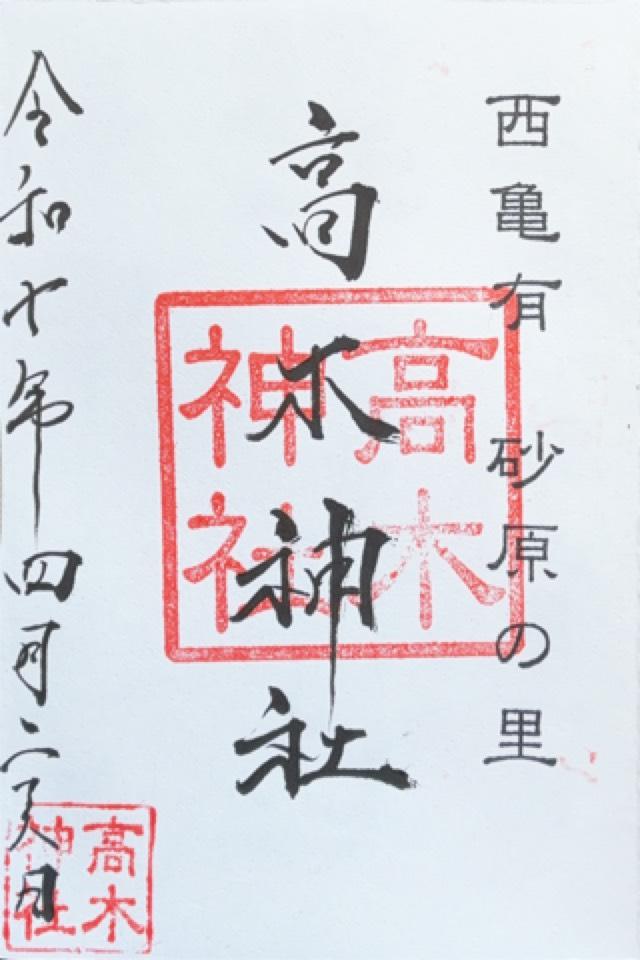 西亀有 砂原の里
高木神社
高木
神社
令和七年四月二六日
高木
神社